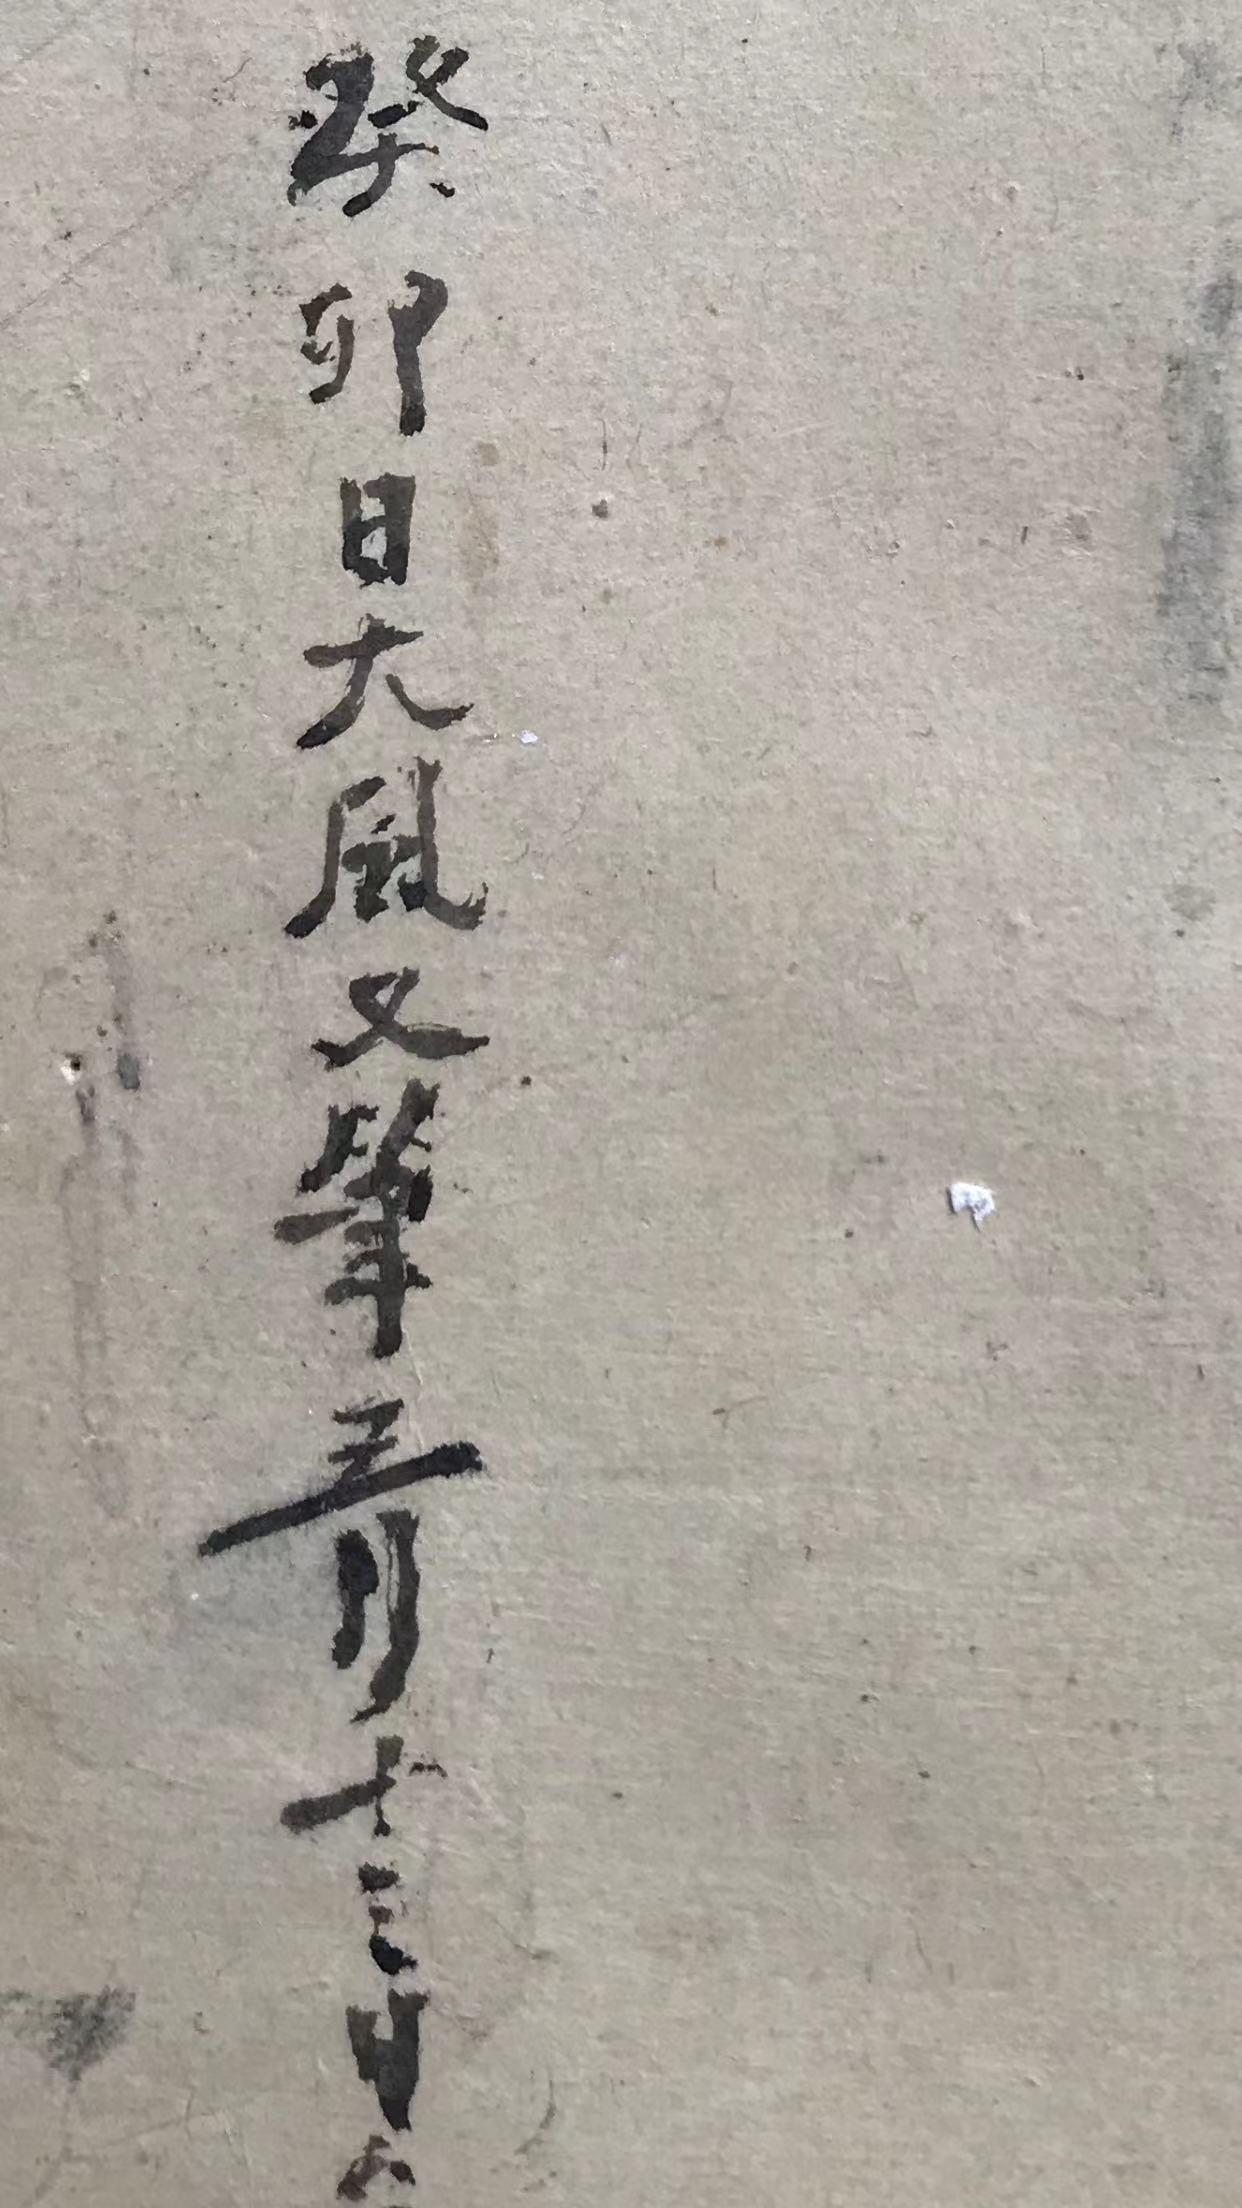 癸卯日大風又筆三月十三日